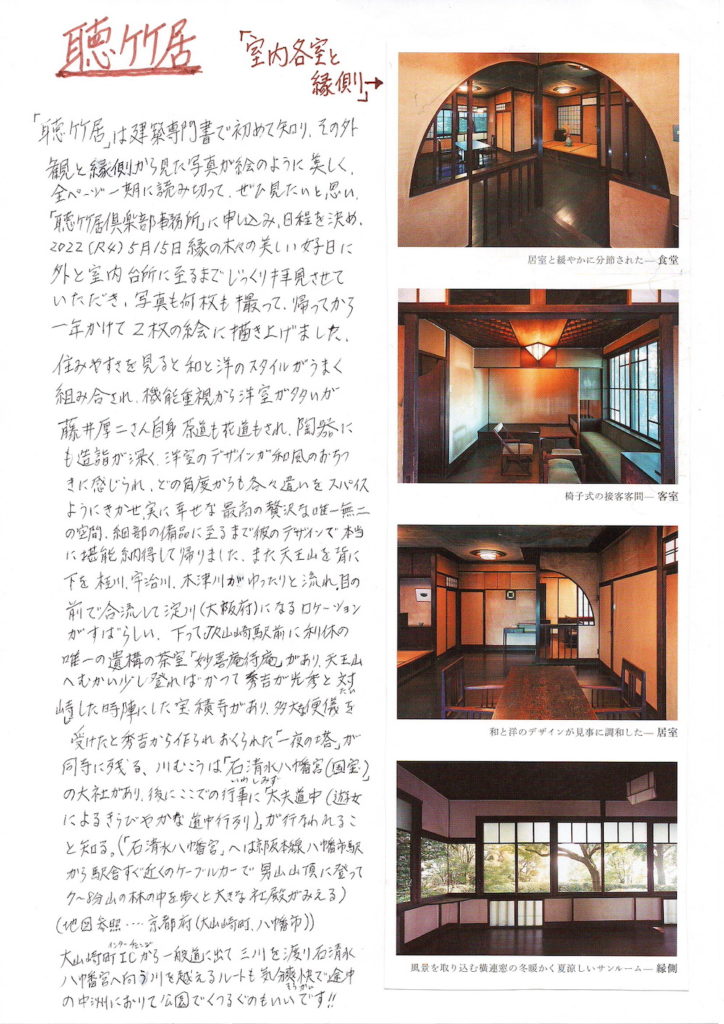 聴竹居
「室内各室と
縁側」→
「聴竹居」は建築専門書で初めて知り、その外
観と縁側から見た写真が絵のように美しく、
全ページ一期に読み切って、ぜひ見たいと思い、
「聴竹居倶楽部事務所」に申し込み、日程を決め、
2022(R4)5月15日緑の木々の美しい好日に
外と室内台所に至るまでじっくり拝見させて
いただき、写真も何枚も撮って、帰ってから
一年かけて2枚の絵に描き上げました。
住みやすさを見ると和と洋のスタイルがうまく
組み合され、機能重視から洋室が多いが
藤井厚二さん自身茶道も花道もされ、陶器に
も造詣が深く、洋室のデザインが和風のおちつ
きに感じられ、どの角度からも各々違いをスパイス
ようにきかせ実に幸せな最高の贅沢な唯一無二
の空間、細部の備品に至るまで彼のデザインで本当
に堪能納得して帰りました、また天王山を背に
下を桂川、宇治川、木津川がゆったりと流れ、目の
前で合流して淀川(大阪府)になるロケーション
がすばらしい、下ってJR山崎駅前に利休の
唯一の遺構の茶室「妙喜庵待庵」があり、天王山
へむかい少し登ればかつて秀吉が光秀と対たい
峙した時陣にした宝積寺があり、多大な便儀を
受けたと秀吉から作られおくられた「一夜の塔」が
同寺に残る、川むこうは「石清水八幡宮(国宝)」いわしみず
の大社があり、後にここでの行事に「太夫道中(遊女
によるきらびやかな道中行列)」が行なわれるこ
と知る。(「石清水八幡宮」へは京阪本線八幡市駅
から駅舎すぐ近くのケーブルカーで男山山頂に登って
7〜8分山の林の中を歩くと大きな社殿がみえる)
(地図参照‥‥京都府(大山崎町、八幡市))
大山崎町ICインターチェンジから一般道に出て三川を渡り石清水
八幡宮へ向う川を越えるルートも気分爽快そうかいで途中
の中洲におりて公園でくつろぐのもいいです!!
居室と緩やかに分節された― 食堂
椅子式の接客客間― 客室
和と洋のデザインが見事に調和した― 居室
風景を取り込む横連窓の冬暖かく夏涼しいサンルーム― 縁側